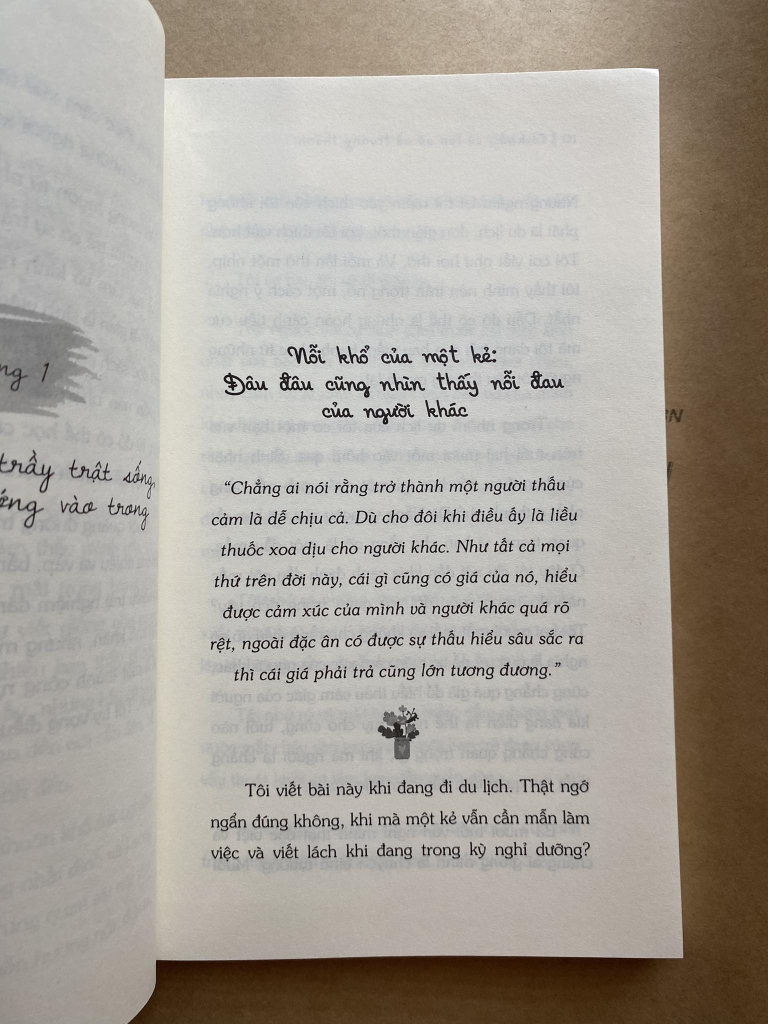 ng 1
trầy trật sống,
vào trong
Nỗi khổ của một kẻ:
Đâu đâu cũng nhìn thấy nỗi đau
của người khác
“Chẳng ai nói rằng trở thành một người thấu
cảm là dễ chịu cả. Dù cho đôi khi điều ấy là liều
thuốc xoa dịu cho người khác. Như tất cả mọi
thứ trên đời này, cái gì cũng có giá của nó, hiểu
được cảm xúc của mình và người khác quá rõ
rệt, ngoài đặc ân có được sự thấu hiểu sâu sắc ra
thì cái giá phải trả cũng lớn tương đương.”
Tôi viết bài này khi đang đi du lịch. Thật ngớ
ngẩn đúng không, khi mà một kẻ vẫn cần mẫn làm
việc và viết lách khi đang trong kỳ nghỉ dưỡng?